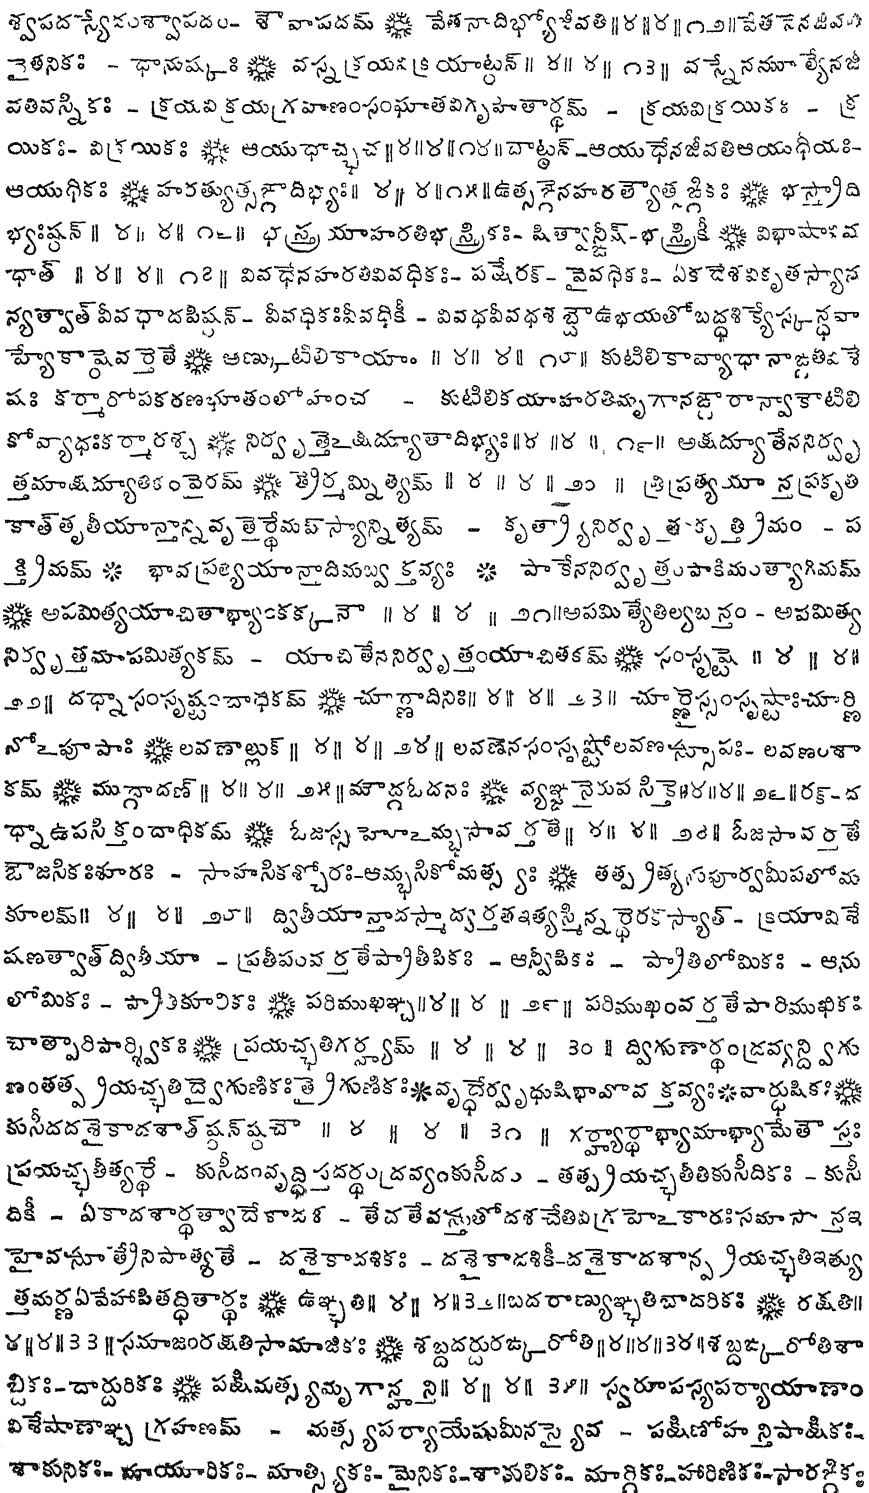 శ్వపదస్యేదంశ్వాపదం- శౌవాపదమ్ ❋ వేతనాదిభ్యోజీవతి॥౪॥౪॥౧౨॥వేతనేనజీవతి
వైతనికః - ధానుష్కః ❋ వస్నక్రయవిక్రయాట్ఠన్॥ ౪॥ ౪॥ ౧౩॥ వస్నేనమూల్యేనజీ
వతివస్నికః - క్రయవిక్రయగ్రహణంసంఘాతవిగృహీతార్థమ్ - క్రయవిక్రయికః - క్ర
యికః- విక్రయికః ❋ ఆయుధాచ్ఛచ॥౪॥౪॥౧౪॥చాట్ఠన్-ఆయుధేనజీవతిఆయుధీయః-
ఆయుధికః ❋ హరత్యుత్సఙ్గాదిభ్యః॥ ౪॥ ౪॥౧౫॥ఉత్సఙ్గేనహరత్యౌత్సఙ్గికః ❋ భస్త్రాది
భ్యఃష్ఠన్॥ ౪॥ ౪॥ ౧౬॥ భస్త్రయాహరతిభస్త్రికః- షిత్వాన్ఙీష్-భస్త్రికీ ❋ విభాషావివ
ధాత్ ॥ ౪॥ ౪॥ ౧౭॥ వివధేనహరతివివధికః- పక్షేఠక్- వైవధికః- ఏకదేశవికృతస్యాన
న్యత్వాత్వీవధాదపిష్ఠన్- వీవధికఃవీవధికీ - వివధవీవధశబ్దౌఉభయతోబద్ధశిక్యేస్కన్ధవా
హ్యేకాష్ఠేవర్తేతే ❋ అణ్కుటిలికాయాః ॥ ౪॥ ౪॥ ౧౮॥ కుటిలికావ్యాధానాఙ్గతివిశే
షః కర్మారోపకరణభూతంలోహంచ - కుటిలికయాహరతిమృగానఙ్గారాన్వాకౌటిలి
కోవ్యాధఃకర్మారశ్చ ❋ నిర్వృత్తేఽక్షద్యూతాదిభ్యః॥౪॥౪॥౧౯॥ అక్షద్యూతేననిర్వృ
త్తమాక్షద్యూతికంవైరమ్ ❋ త్రేర్మమ్నిత్యమ్ ॥ ౪ ॥ ౪ ॥ ౨౦ ॥ త్రిప్రత్యయాన్తప్రకృతి
కాత్తృతీయాన్తాన్నివృత్తేర్థేమప్స్యాన్నిత్యమ్ - కృత్యానిర్వృత్తంకృత్త్రిమం - ప
క్త్రిమమ్ ❋ భావప్రత్యయాన్తాదిమబ్వక్తవ్యః ❋ పాకేననిర్వృత్తంపాకిమంత్యాగిమమ్
❋ అపమిత్యయాచితాభ్యాంకక్కనౌ ॥ ౪ ॥ ౪ ॥ ౨౧॥అపమిత్యేతిల్యబన్తం - అపమిత్య
నిర్వృత్తమాపమిత్యకమ్ - యాచితేననిర్వృత్తంయాచితకమ్ ❋ సంసృష్టే ॥ ౪ ॥ ౪॥
౨౨॥ దధ్నాసంసృష్టందాధికమ్ ❋ చూర్ణాదినిః॥ ౪॥ ౪॥ ౨౩॥ చూర్ణైస్సంసృష్టాఃచూర్ణి
నోఽపూపాః ❋ లవణాల్లుక్॥ ౪॥ ౪॥ ౨౪॥ లవణేనసంసృష్టోలవణస్సూపః- లవణంశా
కమ్ ❋ ముద్గాదణ్॥ ౪॥ ౪॥ ౨౫॥మౌద్గఓదనః ❋ వ్యఞ్జనైరుపసిక్తే॥౪॥౪॥ ౨౬॥ఠక్-ద
ధ్నాఉపసిక్తందాధికమ్ ❋ ఓజస్సహోఽమ్భసావర్తతే॥ ౪॥ ౪॥ ౨౭॥ ఓజసావర్తతే
ఔజసికఃశూరః - సాహసికశ్చోరః-ఆమ్భసికోమత్స్యః ❋ తత్ప్రత్యనుపూర్వమీపలోమ
కూలమ్॥ ౪॥ ౪॥ ౨౮॥ ద్వితీయాన్తాదస్మాద్వర్తతఇత్యస్మిన్నర్థేఠక్స్యాత్- క్రియావిశే
షణత్వాత్ద్వితీయా - ప్రతీపంవర్తతేప్రాతీపికః - ఆన్వీపికః - ప్రాతిలోమికః - ఆను
లోమికః - ప్రాతికూలికః ❋ పరిముఖఞ్చ॥౪॥ ౪ ॥ ౨౯॥ పరిముఖంవర్తతేపారిముఖికః
చాత్పారిపార్శ్వికః ❋ ప్రయచ్ఛతిగర్హ్యమ్ ॥ ౪ ॥ ౪॥ ౩౦ ॥ ద్విగుణార్థంద్రవ్యన్ద్విగు
ణంతత్ప్రయచ్ఛతిద్వైగుణికఃత్రైగుణికః❋వృద్ధేర్వృధుషిభావోవక్తవ్యః❋వార్ధుషికః❋
కుసీదదశైకాదశాత్ష్ఠన్ష్ఠచౌ ॥ ౪ ॥ ౪ ॥ ౩౧ ॥ గర్హ్యార్థాభ్యామాభ్యామేతౌస్తః
ప్రయచ్ఛతీత్యర్థే - కుసీదంవృద్ధిస్తదర్థంద్రవ్యంకుసీదం - తత్ప్రయచ్ఛతీతికుసీదికః - కుసీ
దికీ - ఏకాదశార్థత్వాదేకాదశ - తేచతేవస్తుతోదశచేతివిగ్రహేఽకారఃసమాసాన్తఇ
హైవసూత్రేనిపాత్యతే - దశైకాదశికః - దశైకాదశికీ-దశైకాదశాన్ప్రయచ్ఛతిఇత్యు
త్తమర్ణఏవేహాపితద్ధితార్థః ❋ ఉఞ్ఛతి॥ ౪॥ ౪॥౩౨॥బదరాణ్యుఞ్ఛతిబాదరికః ❋ రక్షతి॥
౪॥౪॥౩౩॥సమాజంరక్షతిసామాజికః ❋ శబ్దదర్దురఙ్కరోతి॥౪॥౪॥౩౪॥శబ్దఙ్కరోతిశా
బ్దికః-దార్దురికః ❋ పక్షిమత్స్యమృగాన్హన్తి॥ ౪॥ ౪॥ ౩౫॥ స్వరూపస్యపర్యాయాణాం
విశేషాణాఞ్చగ్రహణమ్ - మత్స్యపర్యాయేషుమీనస్యైవ - పక్షిణోహన్తిపాక్షికః-
శాకునికః- మాయూరికః- మాత్స్యికః- మైనికః-శాకులికః- మార్గికః-హారిణికః-సారఙ్గికః